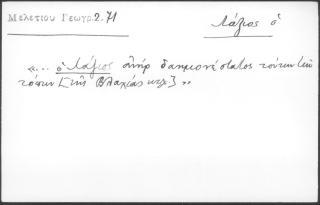 Μελετίου Γεωγρ. 2. 71
Λάζιος ὁ
«... ὁ Λάζιος ἀνὴρ δαημονέστατος τούτων τῶν
τόπων [τῆς Βλαχίας κτλ.] »